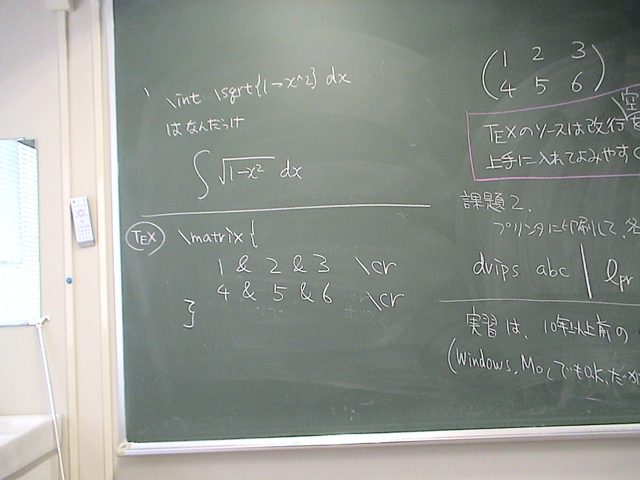 \int \sqrt{1-x^2} dx
はなんだっけ
∫ √1-x² dx
TEX \matrix{
1 & 2 & 3 \cr
4 & 5 & 6 \cr
}
(1 2 3
4 5 6)
TEXのソースは改行
上手に入れてよみやすく
課題2.
プリンタに印刷して,
dvips abc | lpr
実習は、10年以上前の
(Windows, Macでもok,